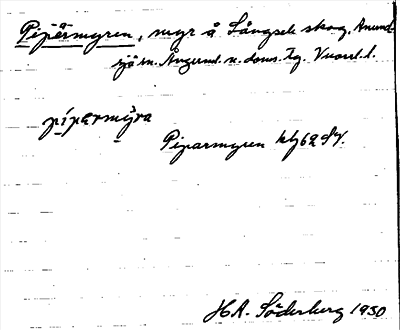 Pipärmyren, myr å Långsele skog, Anund-
sjö sn. Ångerml. n. doms. Tg. Vuorel. l.
piparmýra
Piparmyren kbg 62 SV.
H.A. Söderberg 1930